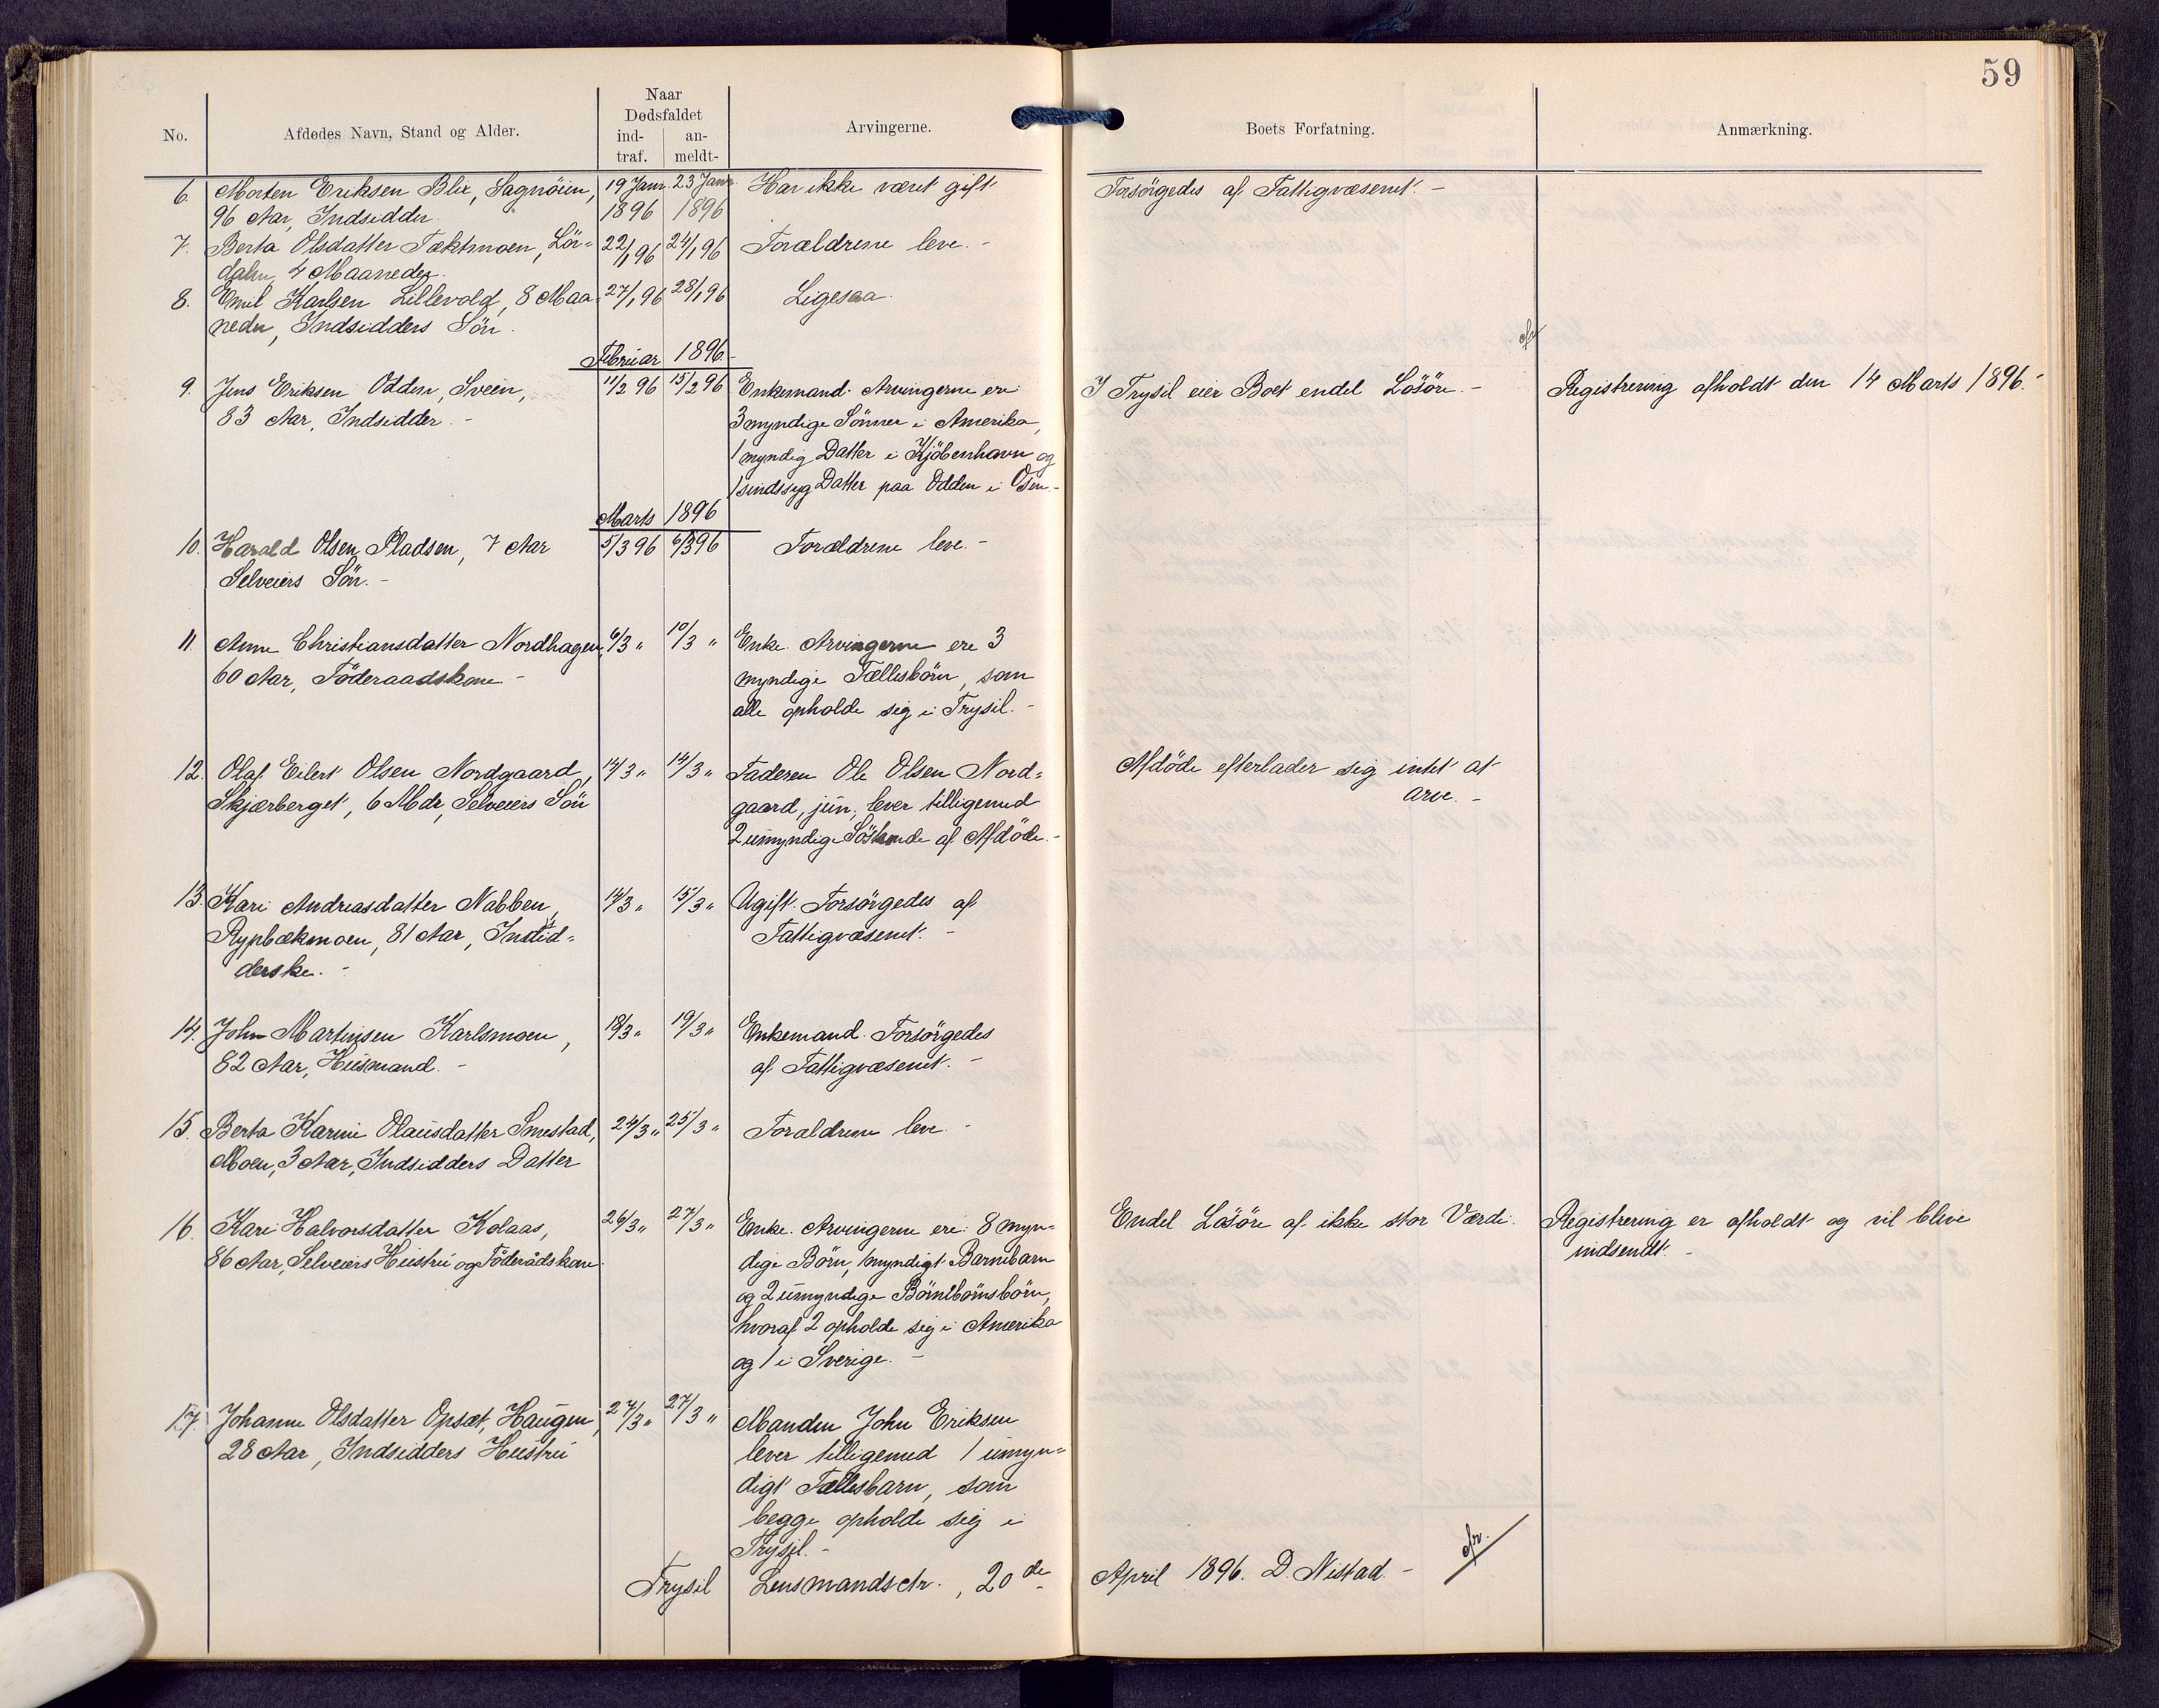 59
No.
Afdødes Navn, Stand og Alder.
Naar
Dødsfaldet
ind-
traf.
an-
meldt-
Arvingerne.
Boets Forfatning.
Anmærkning.
6. Morten Eriksen Blix, Sagnöien, 19 Janr. 23 Janr Har ikke været gift Forsörgedes af Fattigvæsenet. -
96 Aar, Indsidder. 1896 1896
7. Berta Olsdatter Tæktmoen, Lör= 22/1 96 24/1 96 Forældrene leve. -
dalen, 4 Maaneder.
8. Emil Karlsen Lillevold, 8 Maa 27/1 96 28/1 96 Ligesaa.
neder, Indsidders Sön.
Februar 1896.-
9. Jens Eriksen Odden, Sveen, 11/2 96 15/2 96 Enkemand. Arvingerne ere I Trysil eier Boet endel Lösöre. - Registrering afholdt den 14 Marts 1896.-
83 Aar, Indsidder. - 3 myndige Sönner i Amerika,
1 myndig Datter i Kjöbenhavn og
1 sindssyg Datter paa Odden i Osen.-
Marts 1896
10. Harald Olsen Pladsen, 7 Aar 5/3 96 6/3 96 Forældrene leve. -
Selveiers Sön. -
11. Anne Christiansdatter Nordhagen, 6/3 " 10/3 " Enke. Arvingerne ere 3
60 Aar, Föderaadskone - myndige Fællesbörn, som
alle opholde sig i Trysil. -
12. Olaf Eilert Olsen Nordgaard, 14/3 " 14/3 " Faderen Ole Olsen Nord= Afdöde efterlader sig intet at
Skjærberget, 6 Mdr, Selveiers Sön gaard, jun, lever tilligemed arve. -
2 umyndige Söskende af Afdöde. -
13. Kari Andreasdatter Nabben, 14/3 " 15/3 " Ugift. Forsörgedes af
Rypbækmoen, 81 Aar, Indsid= Fattigvæsenet. -
derske. -
14. John Martinsen Karlsmoen, 18/3 " 19/3 " Enkemand. Forsörgedes
82 Aar, Husmand. - af Fattigvæsenet. -
15. Berta Karine Olausdatter Smestad, 24/3 " 25/3 " Forældrene leve. -
Moen, 3 Aar, Indsidders Datter
16. Kari Halvorsdatter Kolaas, 26/3 " 27/3 " Enke. Arvingerne ere: 8 myn- Endel Lösöre af ikke stor Værdi. Registrering er afholdt og vil blive
86 Aar, Selveiers Hustru og Föderådskone. dige Börn, 1 myndigt Barnebarn indsendt. -
og 2 umyndige Börnebörnsbörn,
hvoraf 2 opholde sig i Amerika
og 1 i Sverige. -
17. Johanne Olsdatter Opsæt, Haugen, 27/3 " 27/3 " Manden John Eriksen
28 Aar, Indsidders Hustru lever tilligemed 1 umyn=
digt Fællesbarn, som
begge opholde sig i
Trysil. -
Trysil Lensmandsctr., 20de April 1896. D. Nistad. -